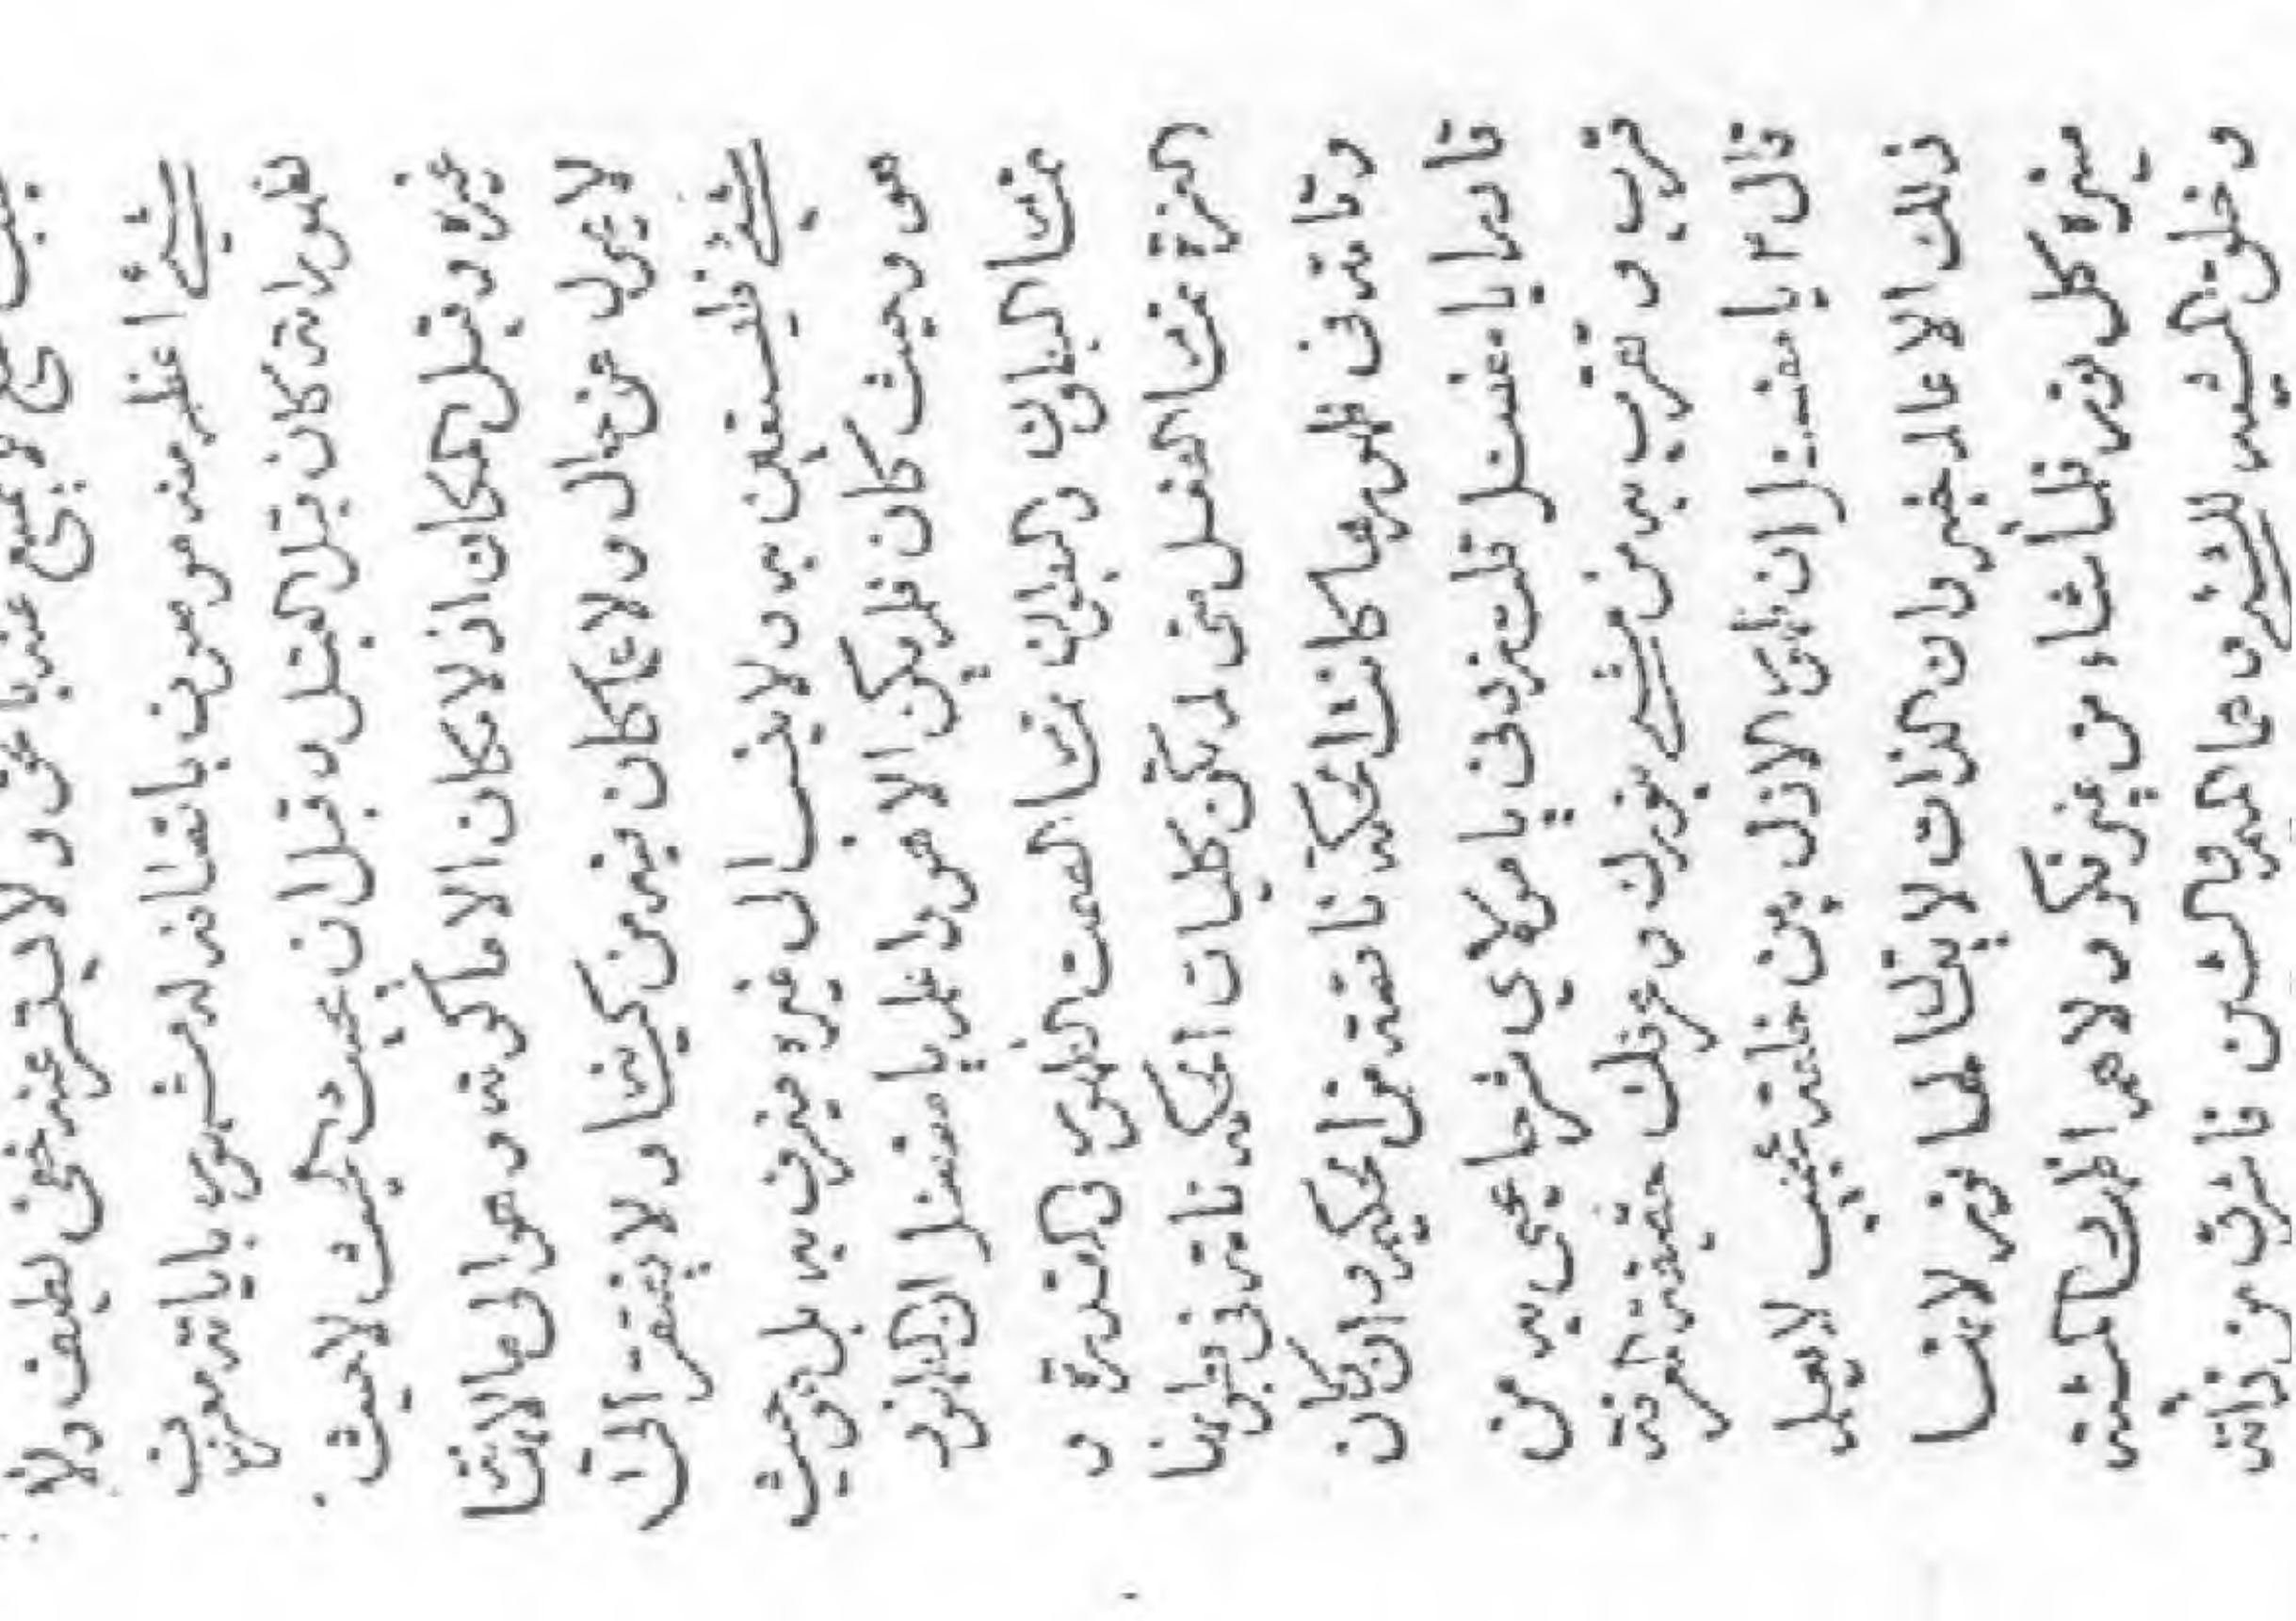 عنه باعث ولا يستتر عنه خفي لطيف ولا
شيء اعظم منه موصوف باتصافه له مشهور باياته معروف
بظهوراته كان قبل القبل وقبل ان يحيث الحيث لا حيث
غيره وقبل المكان اذ لا مكان الا ما كونه وهو الى ما لا
لا يحول عن حال ولا كان من ولا يفتقر الى
شيء فيستعين به ولا ينسب الى غيره فيعرف به بل هو حيث
هو وحيث كان فلم يكن الا هو واعلم يا مفضل ان الظهور
غشا البطون والبطون غشا الصمت الظهور والقدرة و
العزة غشا الفعل متى لم يكن كلمات الحكمة تامة في بطونها
وتامة في ظهورها كانت الحكمة ناقصة من الحكيم وان كان
قادرا يا مفضل قلت زدني يا مولاي شرحا يحيى به من
قرب و تقرب به من بنورك وعرفك حقيقة المعرفة
قال م يا مفضل ان ظهور الازل بين خلقه عجيب لا يعلم
ذلك الا عالم خبير وان الذات لا يقال لها نور لانها
منيرة كل نور فلما شاء من غير فكر ولا هم اظهار المشية
وخلق المشية للشيء وهما الميم والشين فاشرق من ذاته